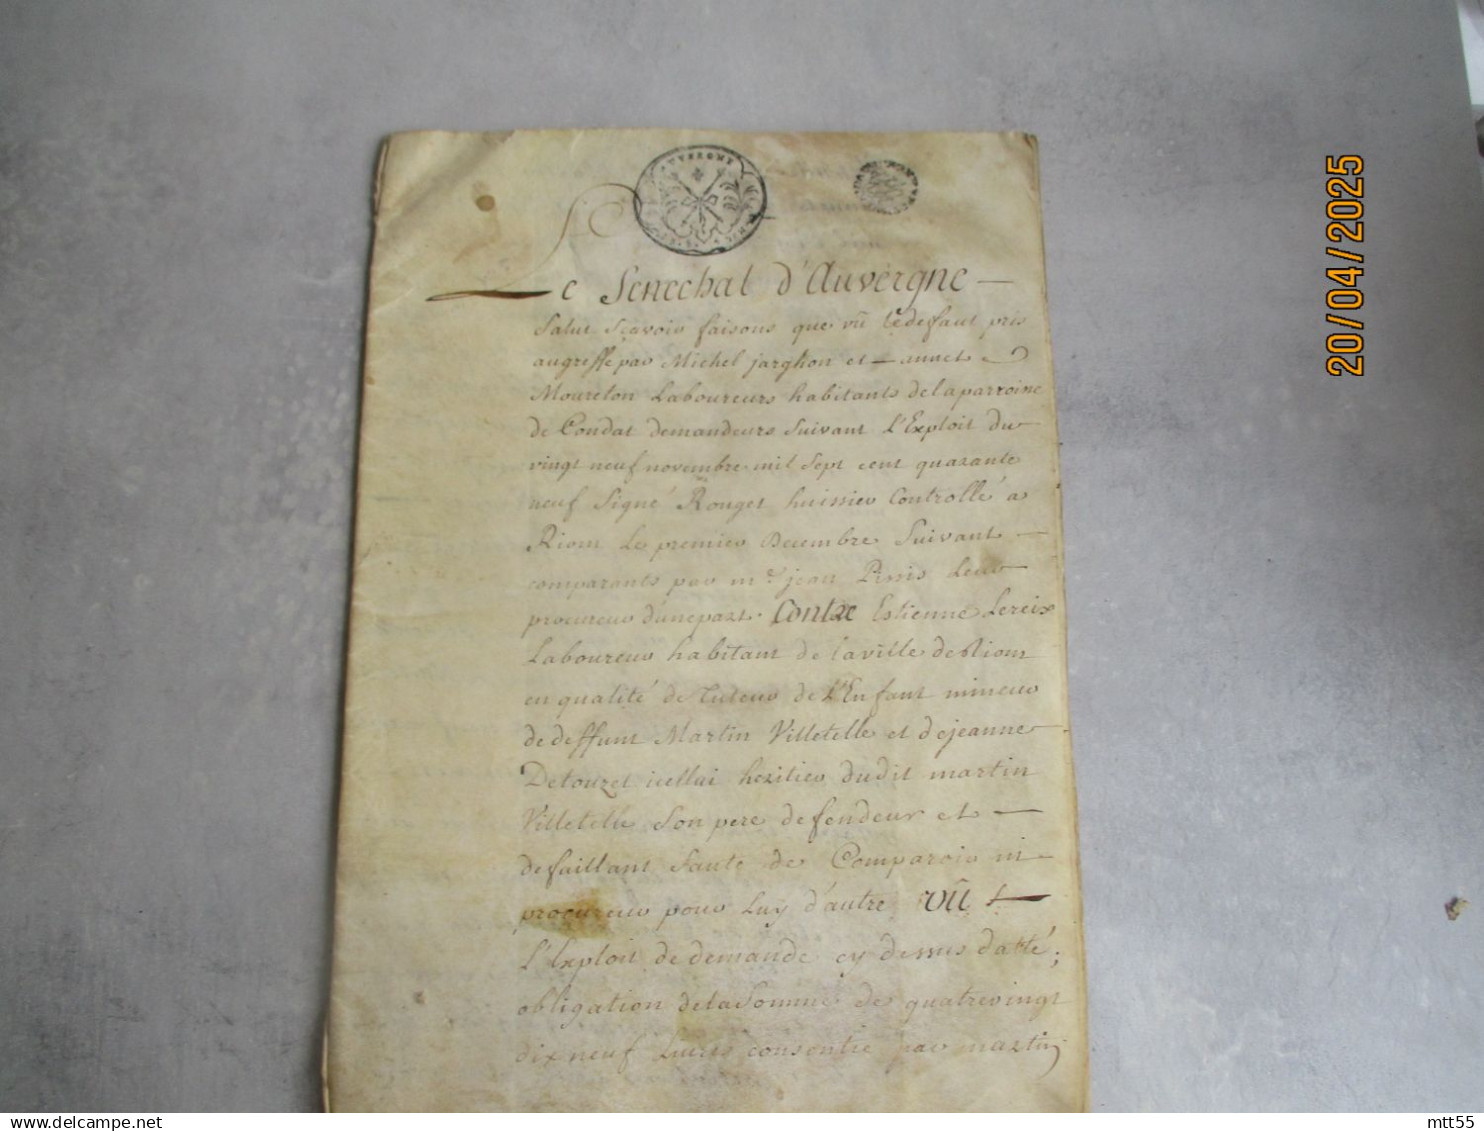 AUVERGNE
Le Senechal d'Auvergne
Salut Sçavoir faisons que vû le deffaut pris
au greffe par Michel jarghon et annet
Mourelon Laboureurs habitants de la parroine
de Condat demandeurs Suivant L'Exploit du
vingt neuf novembre mil Sept cent quarante
neuf Signé Rouget huissier Controllé a
Riom Le premier Decembre Suivant
comparants par mr. jean Pinis Leur
procureur d'unepart. Contre Estienne Lereix
Laboureur habitant de la ville de Riom
en qualité de Tuteur de L'Enfant mineur
de deffunt Martin Villetelle et de jeanne
Detouzet icellui heritier dudit martin
Villetelle Son pere defendeur et
defaillant faute de Comparoir ni
procureur pour Luy d'autre vû
L'Exploit de demande cy dessus datté;
obligation de la Somme de quatrevingt
dix neuf Livres consentie par martin
20/04/2025
www.delcampe.net
mtt55